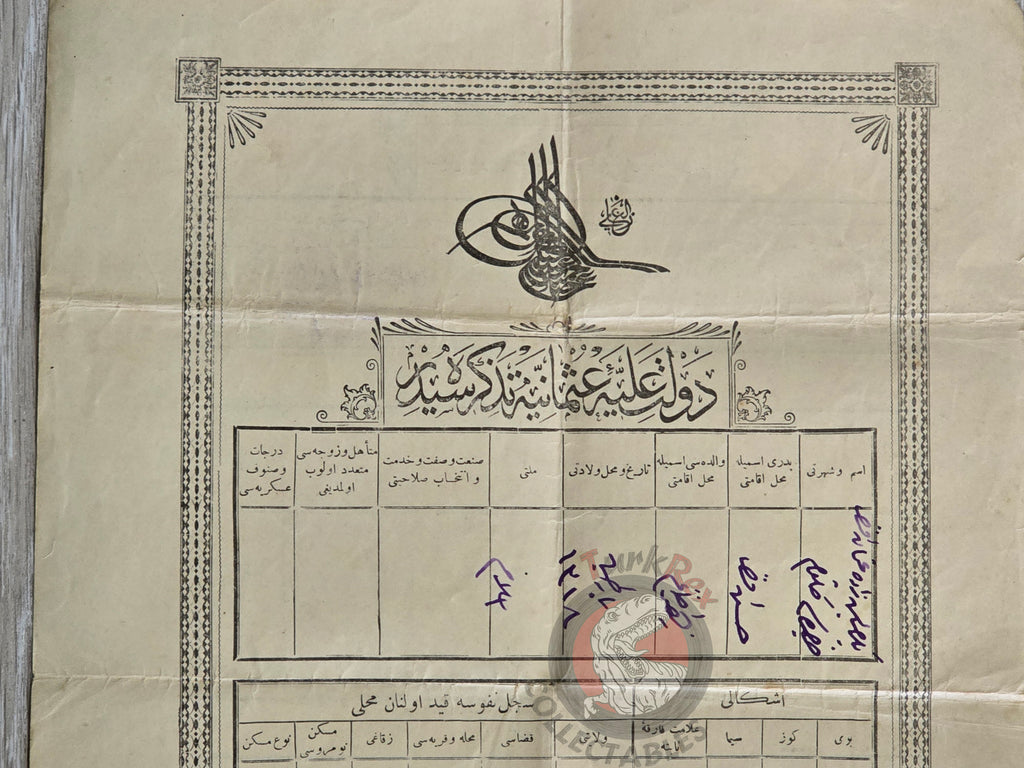 الغازی
دولت علیهٔ عثمانیه تذکره سیدر
اسم وشهرتی
پدری اسمیله محل اقامتی
والده سی اسمیله محل اقامتی
تاریخ و محل ولادتی
ملتی
صنعت و صفت و خدمت و انتخاب صلاحیتی
متأهل و زوجه سی متعدد اولوب اولمدیغی
درجات وصنوف عسکریه سی
١٣١٨
TurkRex
COLLECTABLES
اشکالی
سجل نفوسه قید اولنان محلی
بوی
کوز
سیما
علامت فارقهٔ ثابته
ولایتی
قضاسی
محله وقریه سی
زقاغی
مسکن نومروسی
نوع مسکن